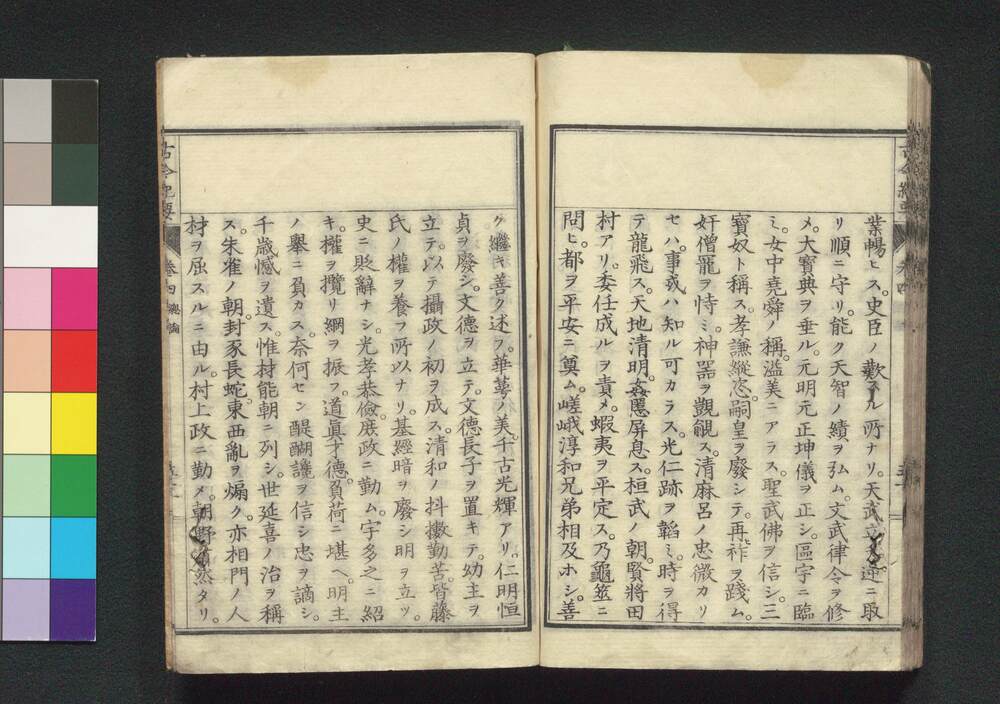 業暢ヒス。史臣ノ歎スル所ナリ。天武立 逆ニ取
リ順ニ守リ。能ク天智ノ績ヲ弘ム。文武律令ヲ修
メ。大寳典ヲ垂ル。元明元正坤儀ヲ正シ。區宇ニ臨
ミ。女中堯舜ノ稱。溢美ニアラス。聖武佛ヲ信シ。三
寳奴ト稱ス。孝謙縱恣。嗣皇ヲ廢シテ。再祚ヲ踐ム。
奸僧罷ヲ恃ミ。神器ヲ覬覦ス。清麻呂ノ忠微カリ
セハ。事或ハ知ル可カラス。光仁跡ヲ韜ミ。時ヲ得
テ龍飛ス。天地清明。姦慝屏息ス。桓武ノ朝。賢將田
村アリ。委任成ルヲ責メ。蝦夷ヲ平定ス。乃龜筮ニ
問ヒ。都ヲ平安ニ奠ム。嵯峨淳和兄弟相及ホシ。善
ク繼キ善ク述フ。華蕚ノ美。千古光輝アリ。仁明恒
貞ヲ廢シ。文德ヲ立テ。文德長子ヲ置キテ。幼主ヲ
立テ。以テ攝政ノ初ヲ成ス。清和ノ抖擻勤苦。皆藤
氏ノ權ヲ養フ所以ナリ。基經暗ヲ廢シ明ヲ立ツ。
史ニ貶辭ナシ。光孝恭儉。庶政ニ勤ム。宇多之ニ紹
キ。權ヲ攬リ綱ヲ振フ。道眞才德。負荷ニ堪ヘ。明主
ノ舉ニ負カス。奈何セン醍醐讒ヲ信シ忠ヲ謫シ。
千歳憾ヲ遺ス。惟材能朝ニ列シ。世延喜ノ治ヲ稱
ス。朱雀ノ朝。封豕長蛇。東西亂ヲ煽ク。亦相門ノ人
材ヲ屈スルニ由ル。村上政ニ勤メ。朝野 然タリ。
古今紀要
卷四
總論